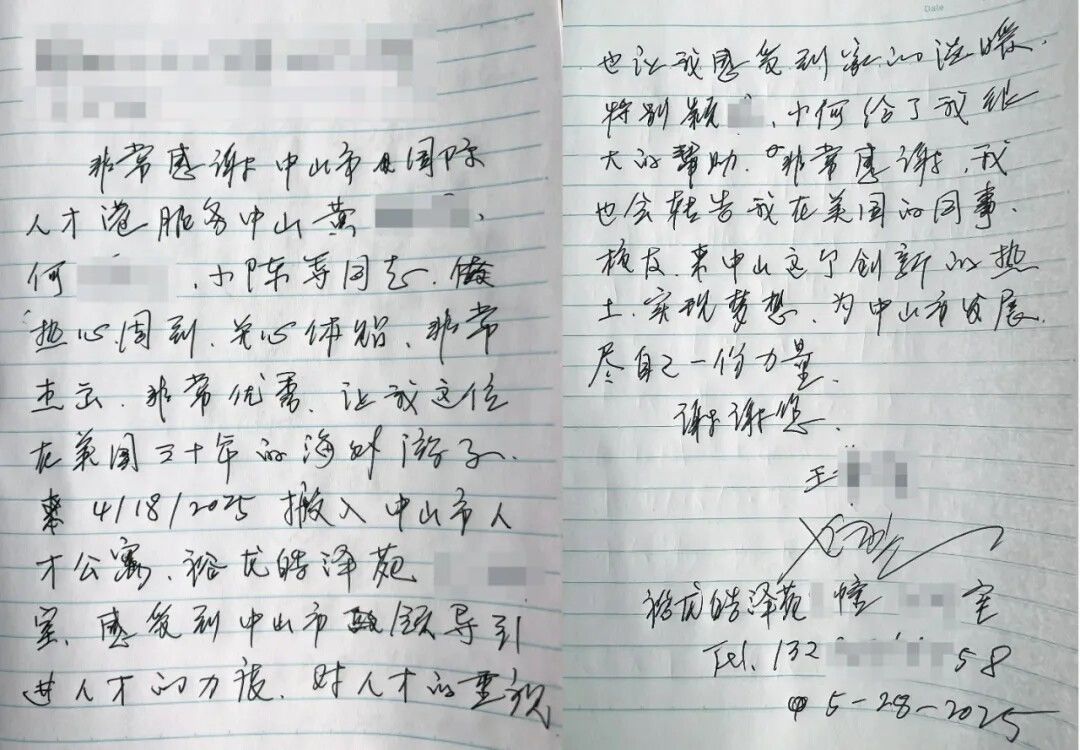 非常感谢中山市国际
人才港服务中山黄
何 、小陈等同志、做
热心周到、关心体贴、非常
杰出、非常优秀、让我这位
在美国三十年的海外游子、
4/18/2025 搬入中山市人
才公寓、裕龙皓泽苑
室、感受到中山市领导引
进人才的力度、对人才的重视
Date
也让我感受到家的温暖、
特别颖 、小何给了我很
大的帮助。非常感谢、我
也会转告我在美国的同事、
校友、来中山这个创新的热
土、实现梦想、为中山市发展、
尽自己一份力量、
谢谢您、
王
裕龙皓泽苑 幢 室
Tel. 132 58
5-28-2025